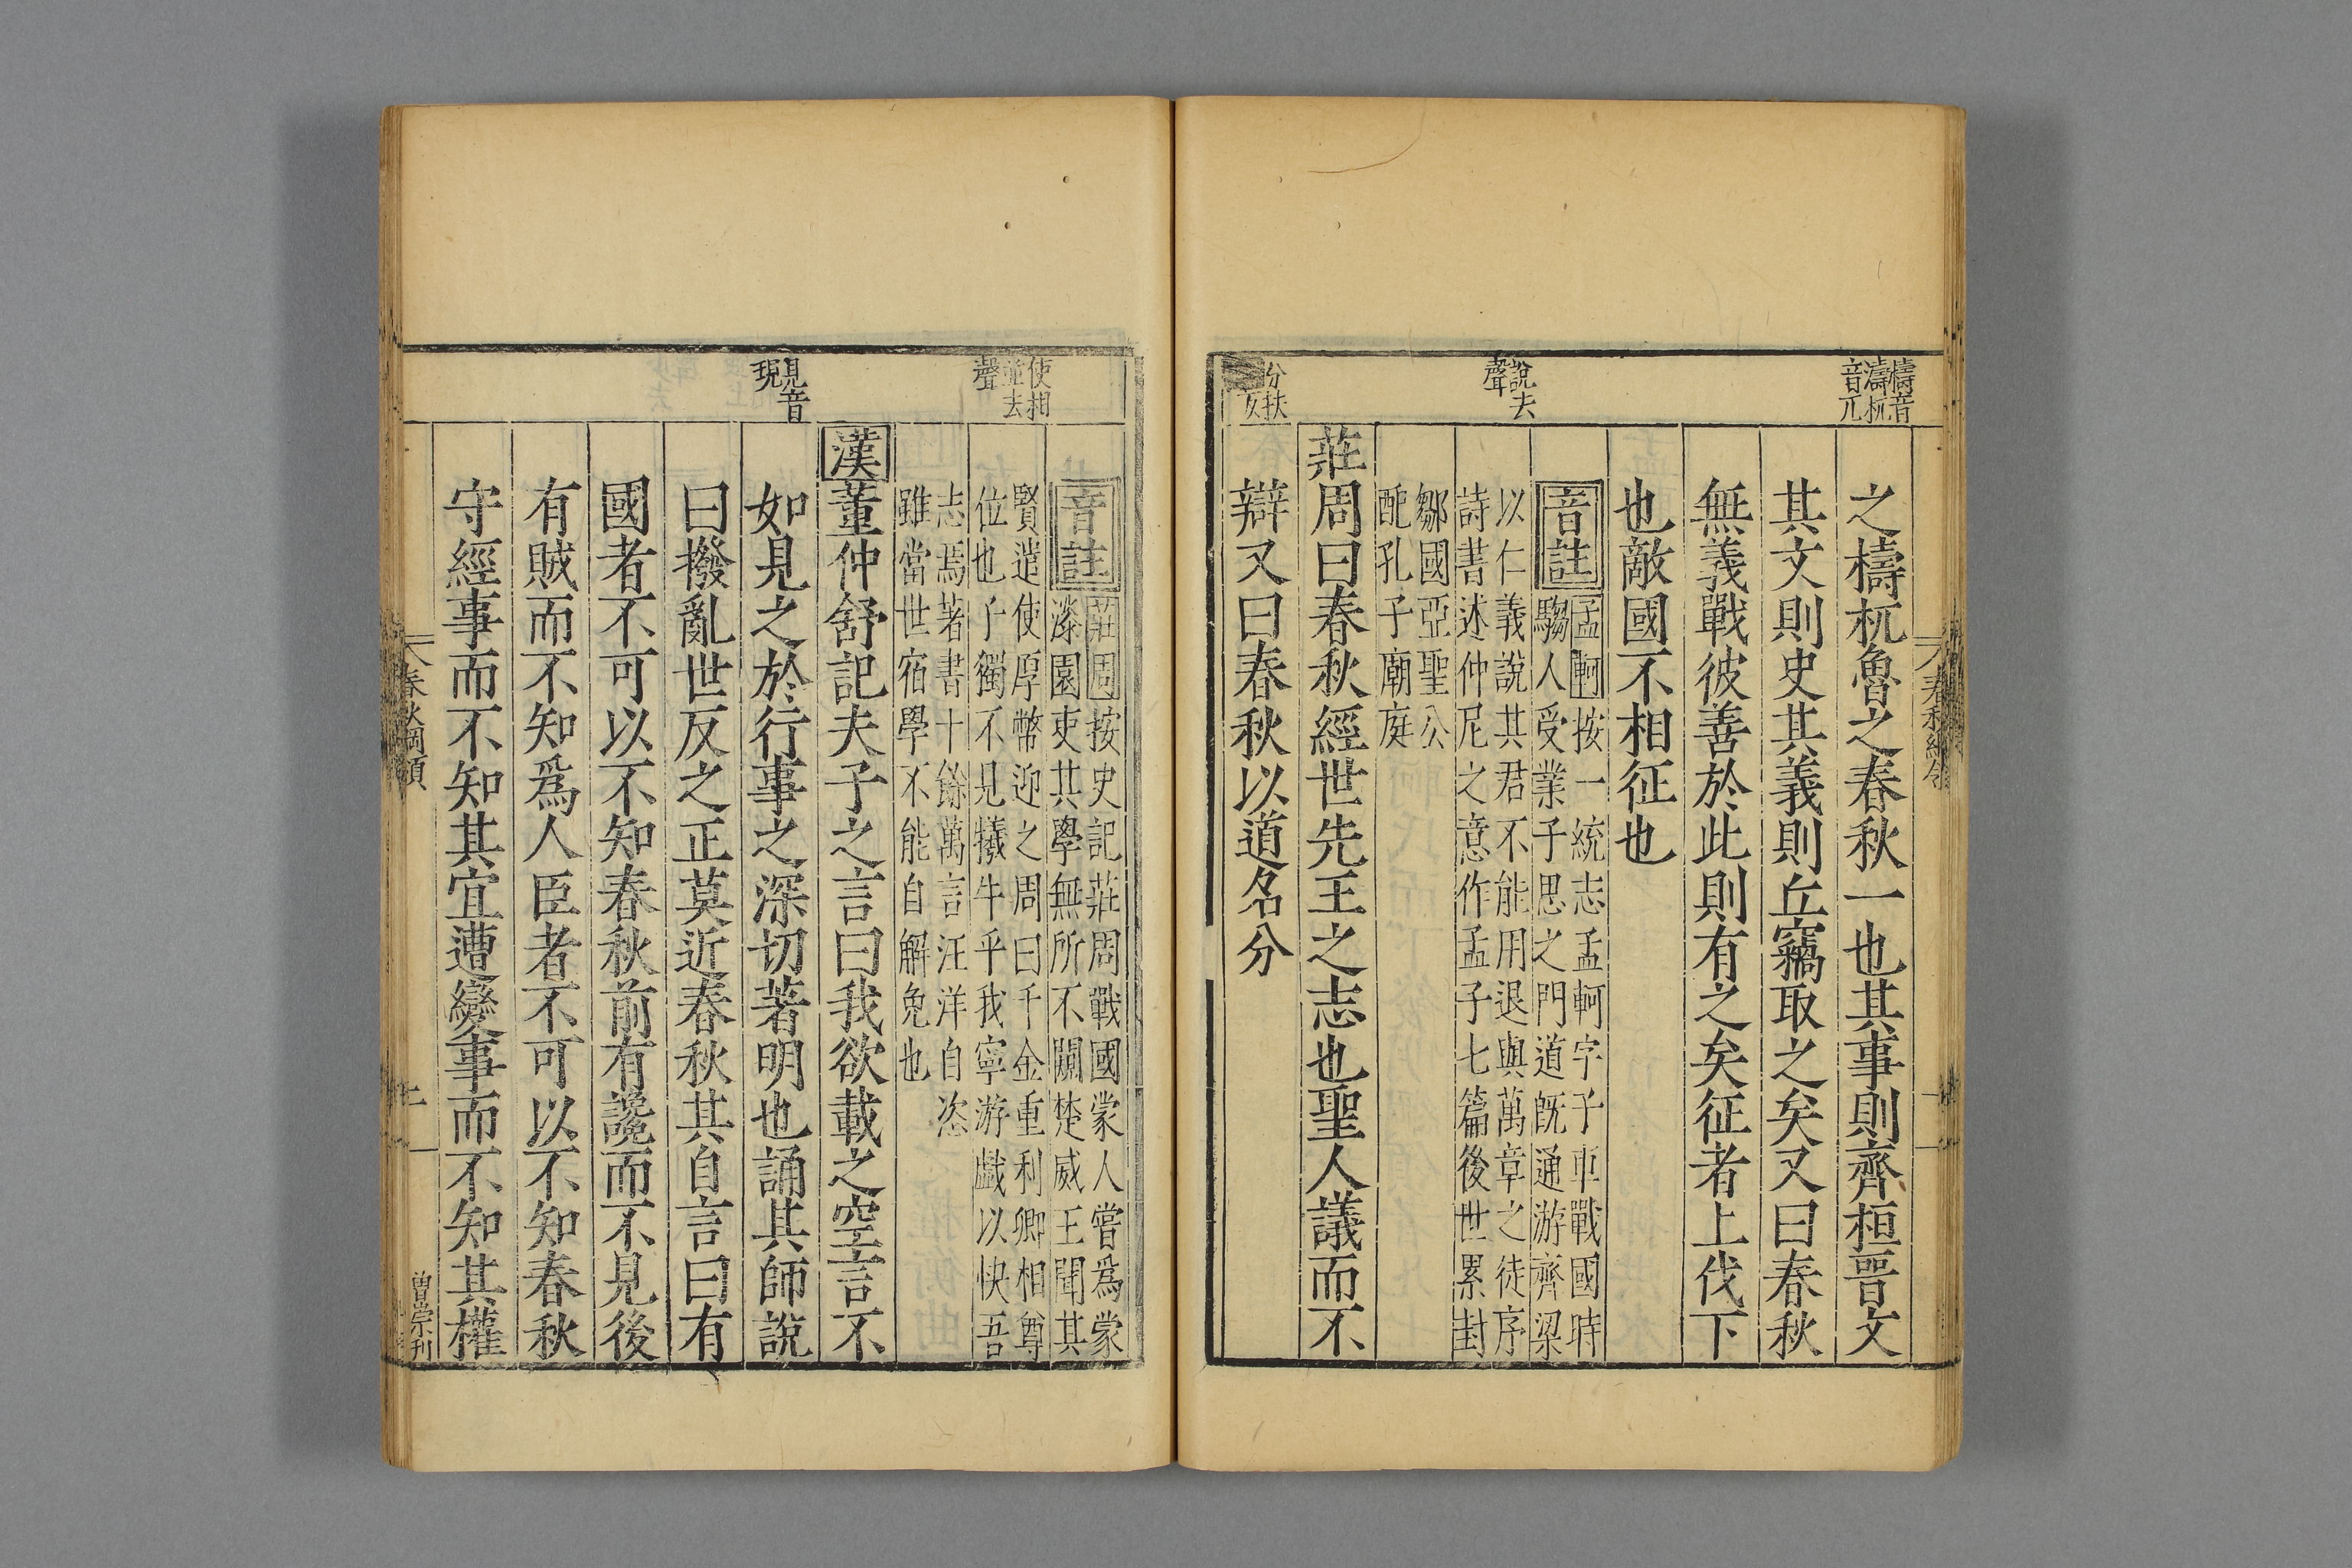 檮音
濤杌
音兀
之檮杌魯之春秋一也其事則齊桓晉文
其文則史其義則丘竊取之矣又曰春秋
無義戰彼善於此則有之矣征者上伐下
說去
聲
也敵國不相征也
音註孟軻按一統志孟軻字子車戰國時
騶人受業子思之門道旣通游齊梁
以仁義說其君不能用退與萬章之徒序
詩書述仲尼之意作孟子七篇後世累封
鄒國亞聖公
配孔子廟庭
莊周曰春秋經世先王之志也聖人議而不
分扶
辯又曰春秋以道名分
音註莊周按史記莊周戰國蒙人嘗爲蒙
漆園吏其學無所不闚楚威王聞其
使相
並去
聲
賢遣使厚幣迎之周曰千金重利卿相尊
位也子獨不見犧牛乎我寧游戲以快吾
志焉著書十餘萬言汪洋自恣
雖當世宿學不能自解免也
漢董仲舒記夫子之言曰我欲載之空言不
見音
現
如見之於行事之深切著明也誦其師說
曰撥亂世反之正莫近春秋其自言曰有
國者不可以不知春秋前有讒而不見後
有賊而不知爲人臣者不可以不知春秋
守經事而不知其宜遭變事而不知其權
春秋綱領